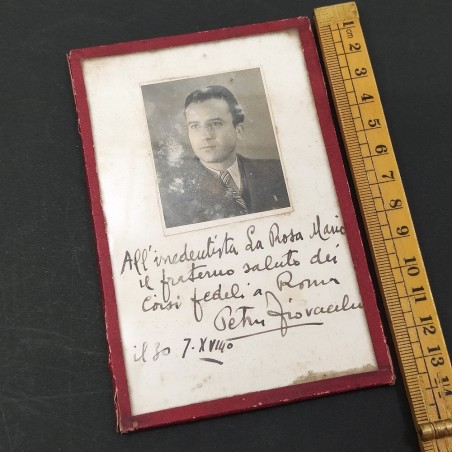 All'irredentista La Rosa Mario
il fraterno saluto dei
Corsi fedeli a Roma
Petru Giovacchini
il 30 7-XVIIIo
1cm
2
3
4
5
6
7
8
9
10
11
12
13
14